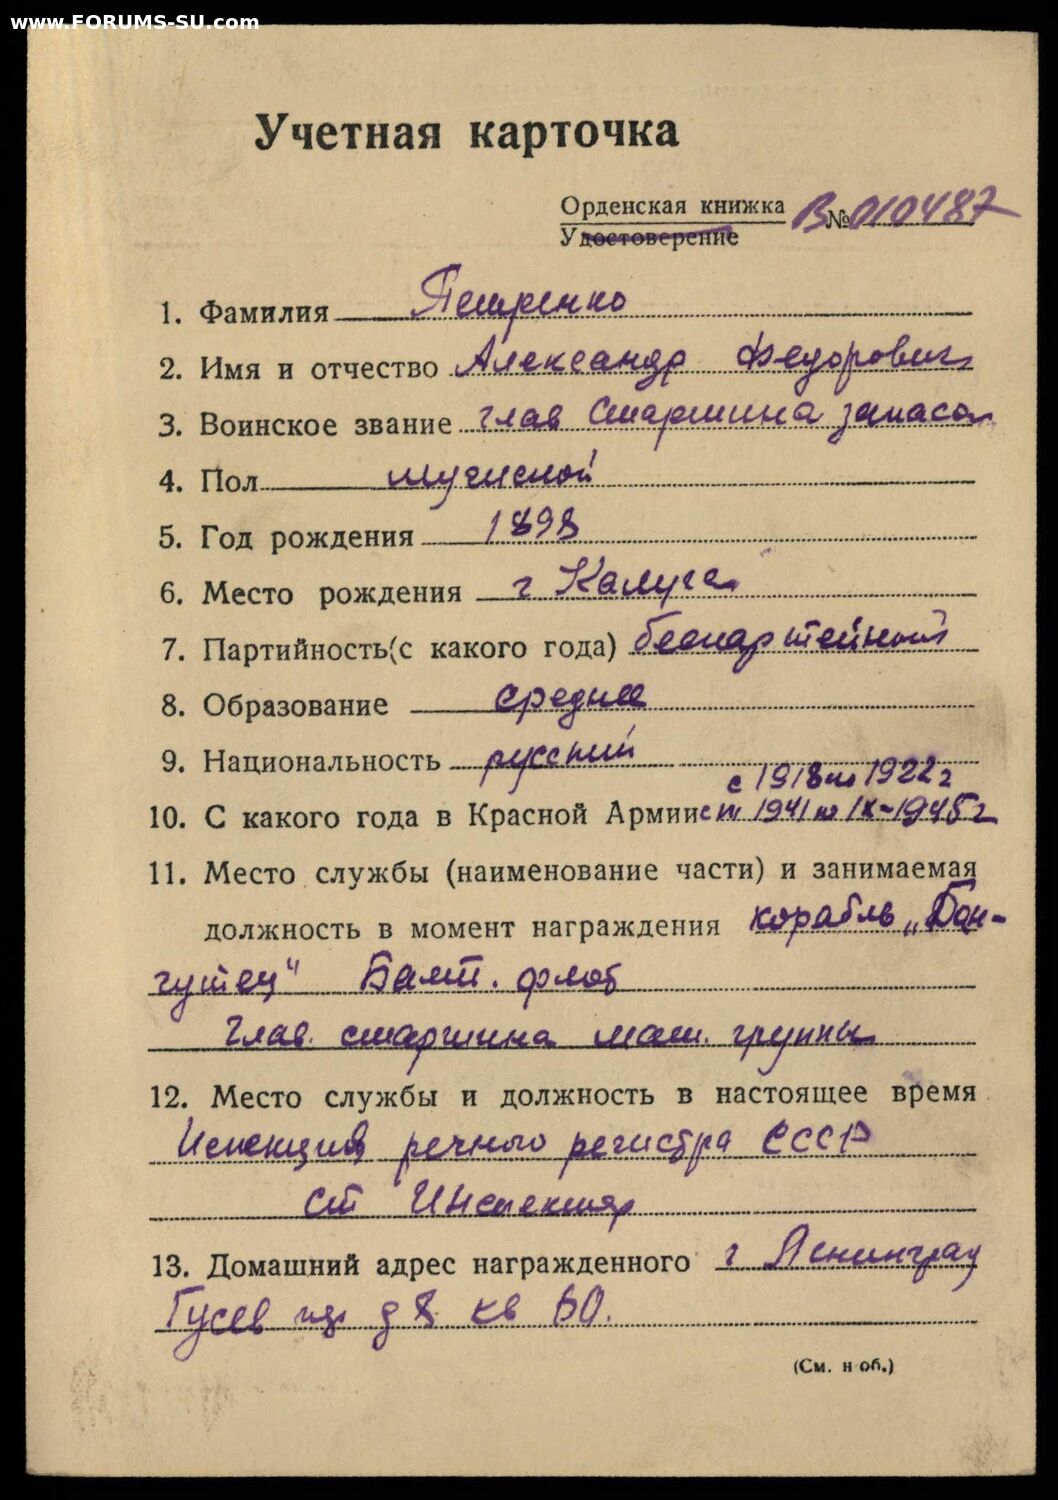 www.FORUMS-SU.com
Учетная карточка
Орденская книжка В № 010487
Удостоверение
1. Фамилия Петренко
2. Имя и отчество Александр Федорович
3. Воинское звание глав старшина запаса
4. Пол мужской
5. Год рождения 1898
6. Место рождения г Калуга
7. Партийность (с какого года) беспартейный
8. Образование среднее
9. Национальность русский
с 1918 по 1922 г
10. С какого года в Красной Армии с 1941 по IX-1945 г
11. Место службы (наименование части) и занимаемая
должность в момент награждения корабль „Ган-
гутец" Балт. флот
Глав. старшина маш. группы
12. Место службы и должность в настоящее время
Инспекция речного регистра СССР
ст Инспектор
13. Домашний адрес награжденного г Ленинград
Гусев д 8 кв 60.
(См. н об.)